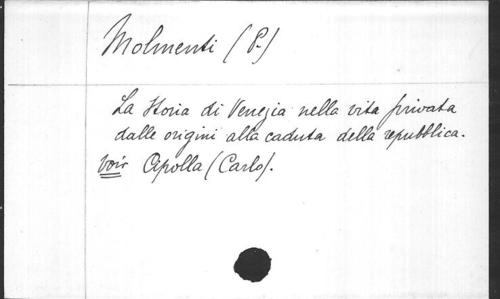 Molmenti (P.)
La Storia di Venezia nella vita privata
dalle origini alla caduta della repubblica.
voir Cipolla (Carlo).